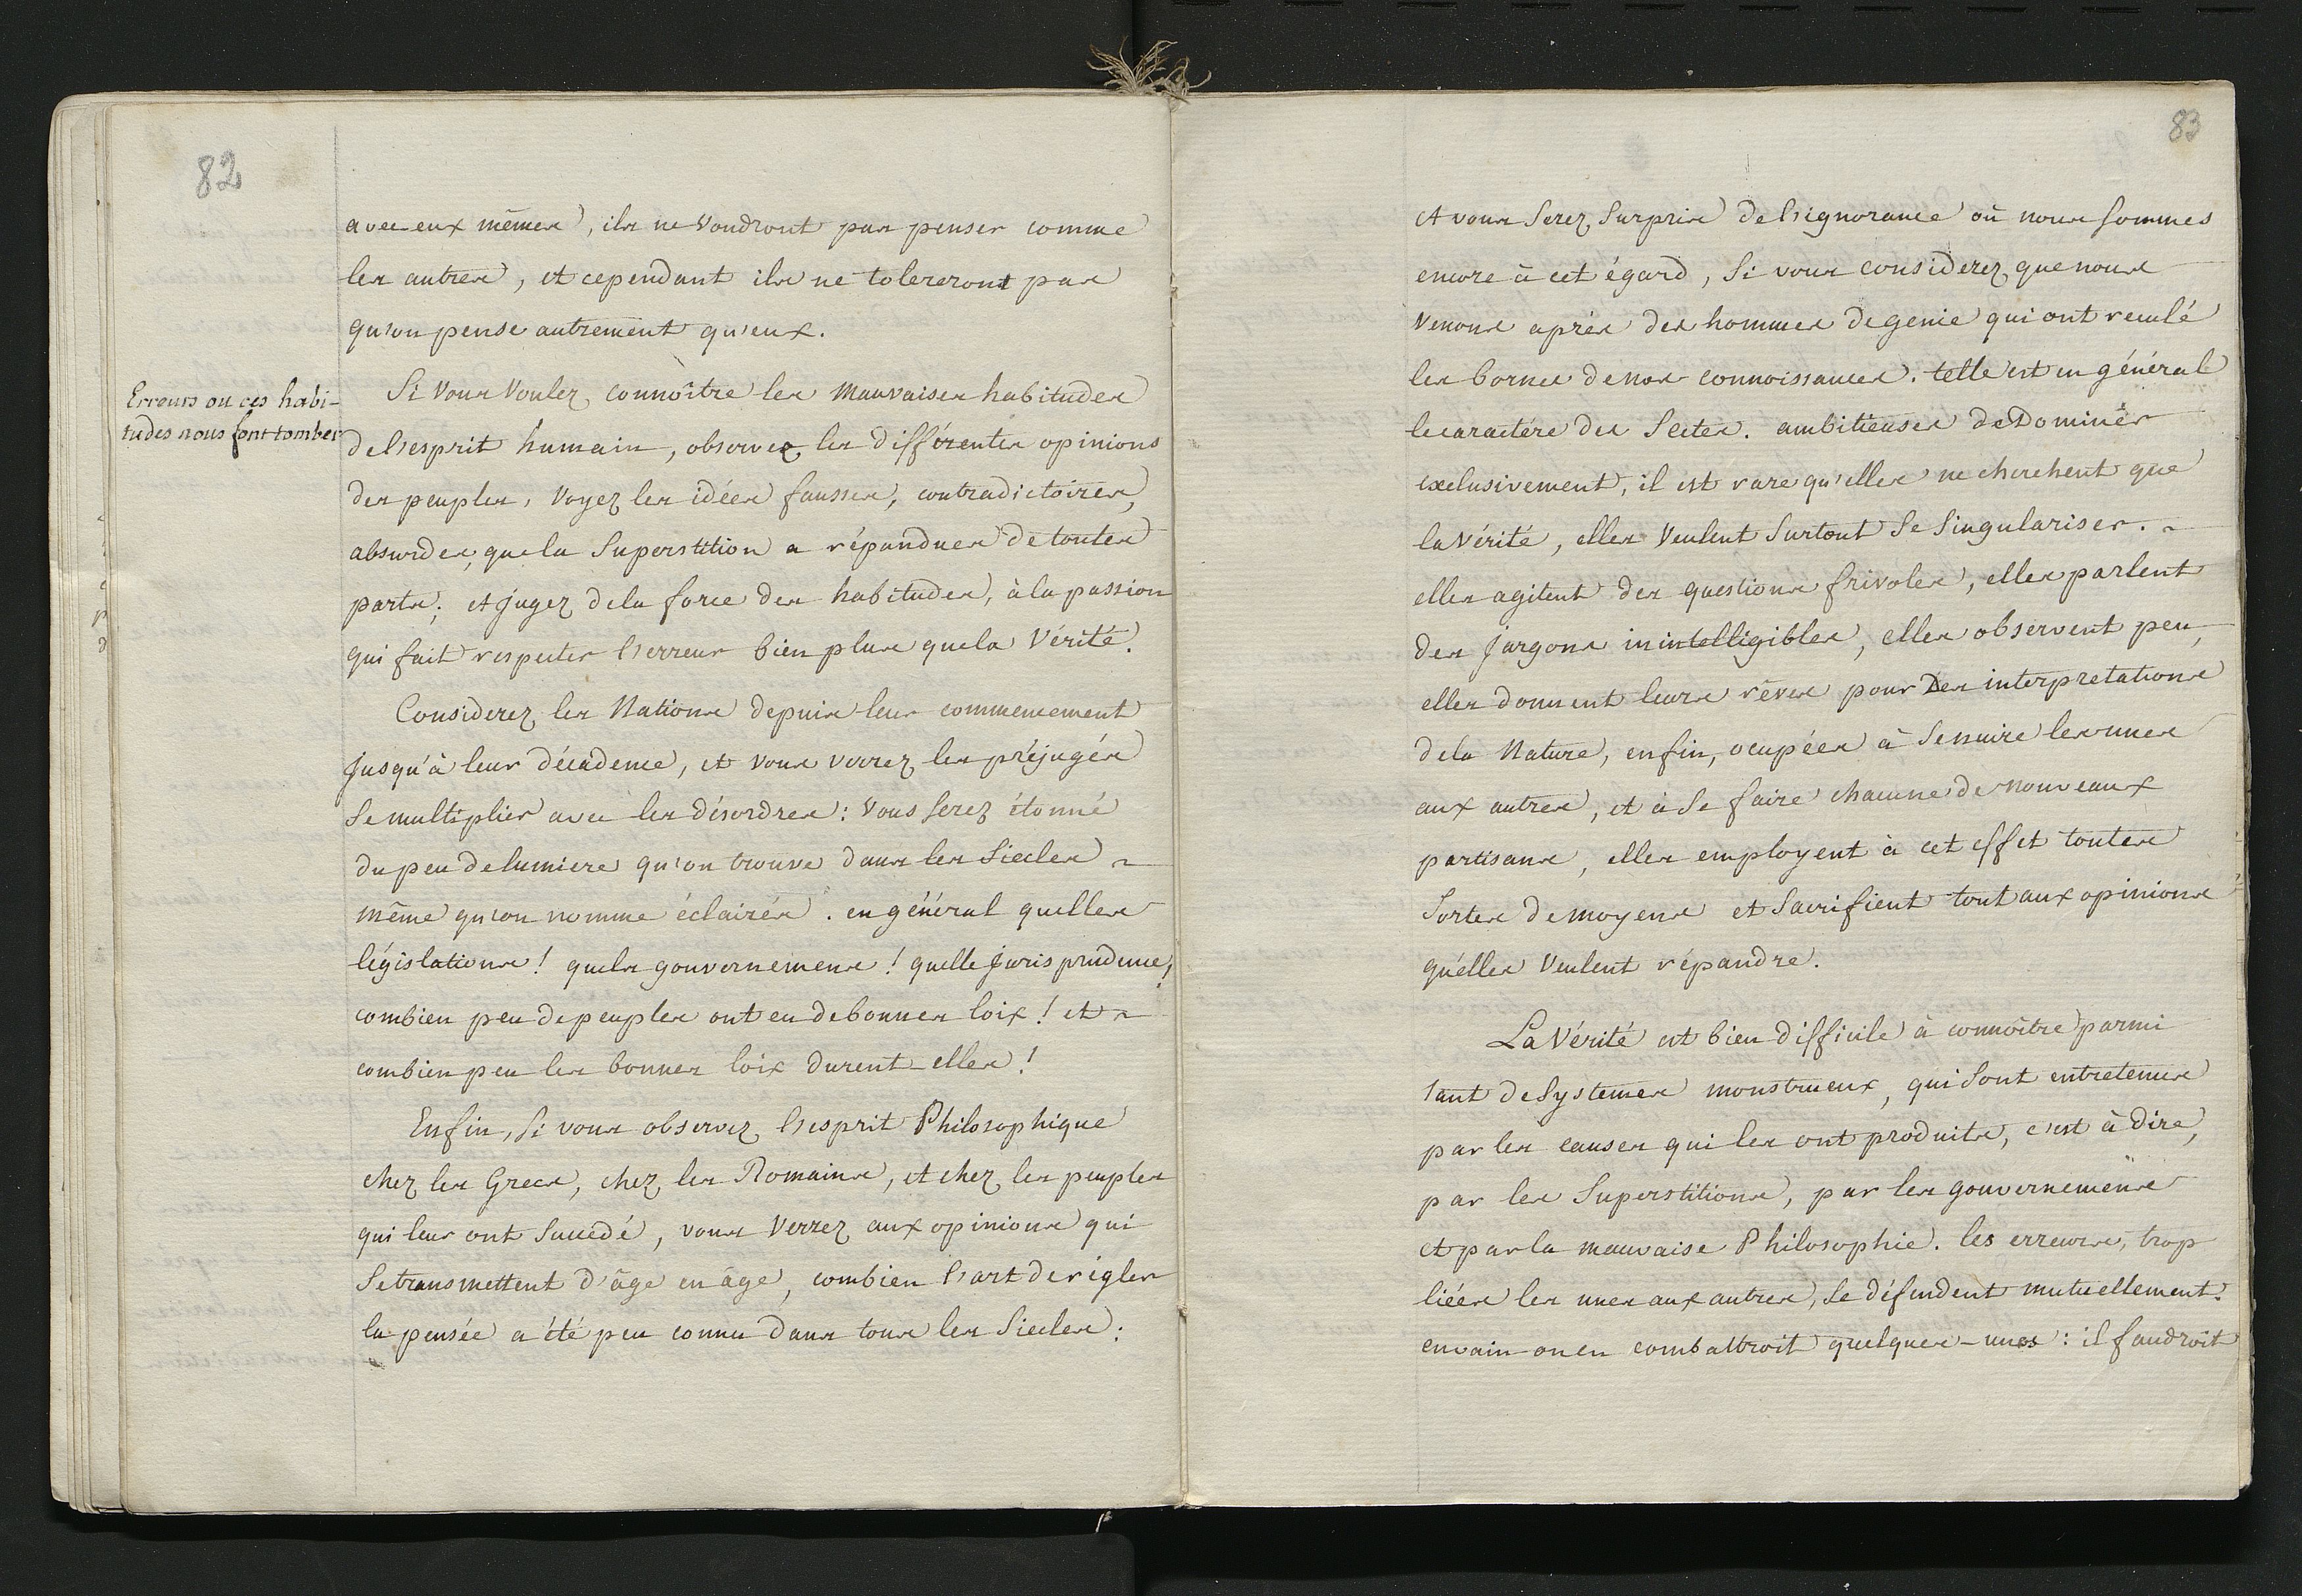 82
avec eux mêmes, ils ne voudront pas penser comme
les autres, et cependant ils ne tolereront pas
qu'on pense autrement qu'eux.
Erreurs ou ces habi-
tudes nous font tomber
Si vous voulez connoître les mauvaises habitudes
de l'esprit humain, observez les différentes opinions
des peuples, voyez les idées fausses, contradictoires,
absurdes, que la Superstition a répandues de toutes
parts; et jugez de la force des habitudes, à la passion
qui fait respecter l'erreur bien plus que la Vérité.
Considerez les Nations depuis leur commencement
jusqu'à leur décadence, et vous verrez les préjugés
Se multiplier avec les désordres: vous serez étonné
du peu de lumiere qu'on trouve dans les Siecles
même qu'on nomme éclairés. en général quelles
législations! quels gouvernemens! quelle jurisprudence!
combien peu de peuples ont eu de bonnes loix! et
combien peu les bonnes loix durent-elles!
Enfin, Si vous observez l'esprit Philosophique
chez les Grecs, chez les Romains, et chez les peuples
qui leur ont Succédé, vous verrez aux opinions qui
Se transmettent d'âge en âge, combien l'art de régler
la pensée a été peu connu dans tous les Siecles:
83
et vous Serez Surpris de l'ignorance où nous sommes
encore à cet égard, Si vous considerez que nous
venons après des hommes de genie qui ont reculé
les bornes de nos connoissances. telle est en général
le caractére des Sectes. ambitieuses de Dominer
exclusivement, il est rare qu'elles ne cherchent que
la Vérité, elles veulent Surtout Se Singulariser.
elles agitent des questions frivoles, elles parlent
des jargons inintelligibles, elles observent peu,
elles donnent leurs rêves pour Des interpretations
de la Nature, enfin, ocupées à Se nuire les unes
aux autres, et à Se faire chacune de nouveaux
partisans, elles employent à cet effet toutes
Sortes de moyens et Sacrifient tout aux opinions
qu'elles veulent répandre.
La Vérité est bien difficile à connoître parmi
tant de Systemes monstrueux, qui Sont entretenus
par les causes qui les ont produits, c'est à dire,
par les Superstitions, par les gouvernemens
et par la mauvaise Philosophie. les erreurs, trop
liées les unes aux autres, Se défendent mutuellement.
en vain on en combattroit quelques-unes: il faudroit